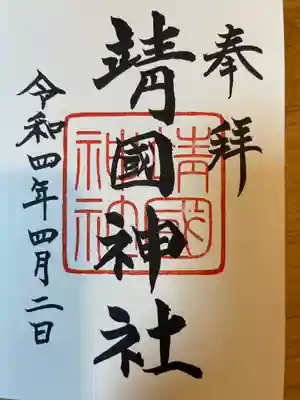 奉拝
靖國神社
靖國神社
令和四年四月二日